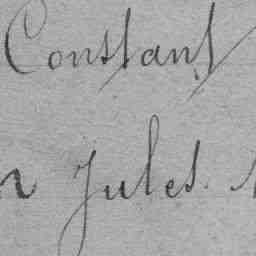 Constant
Jules.